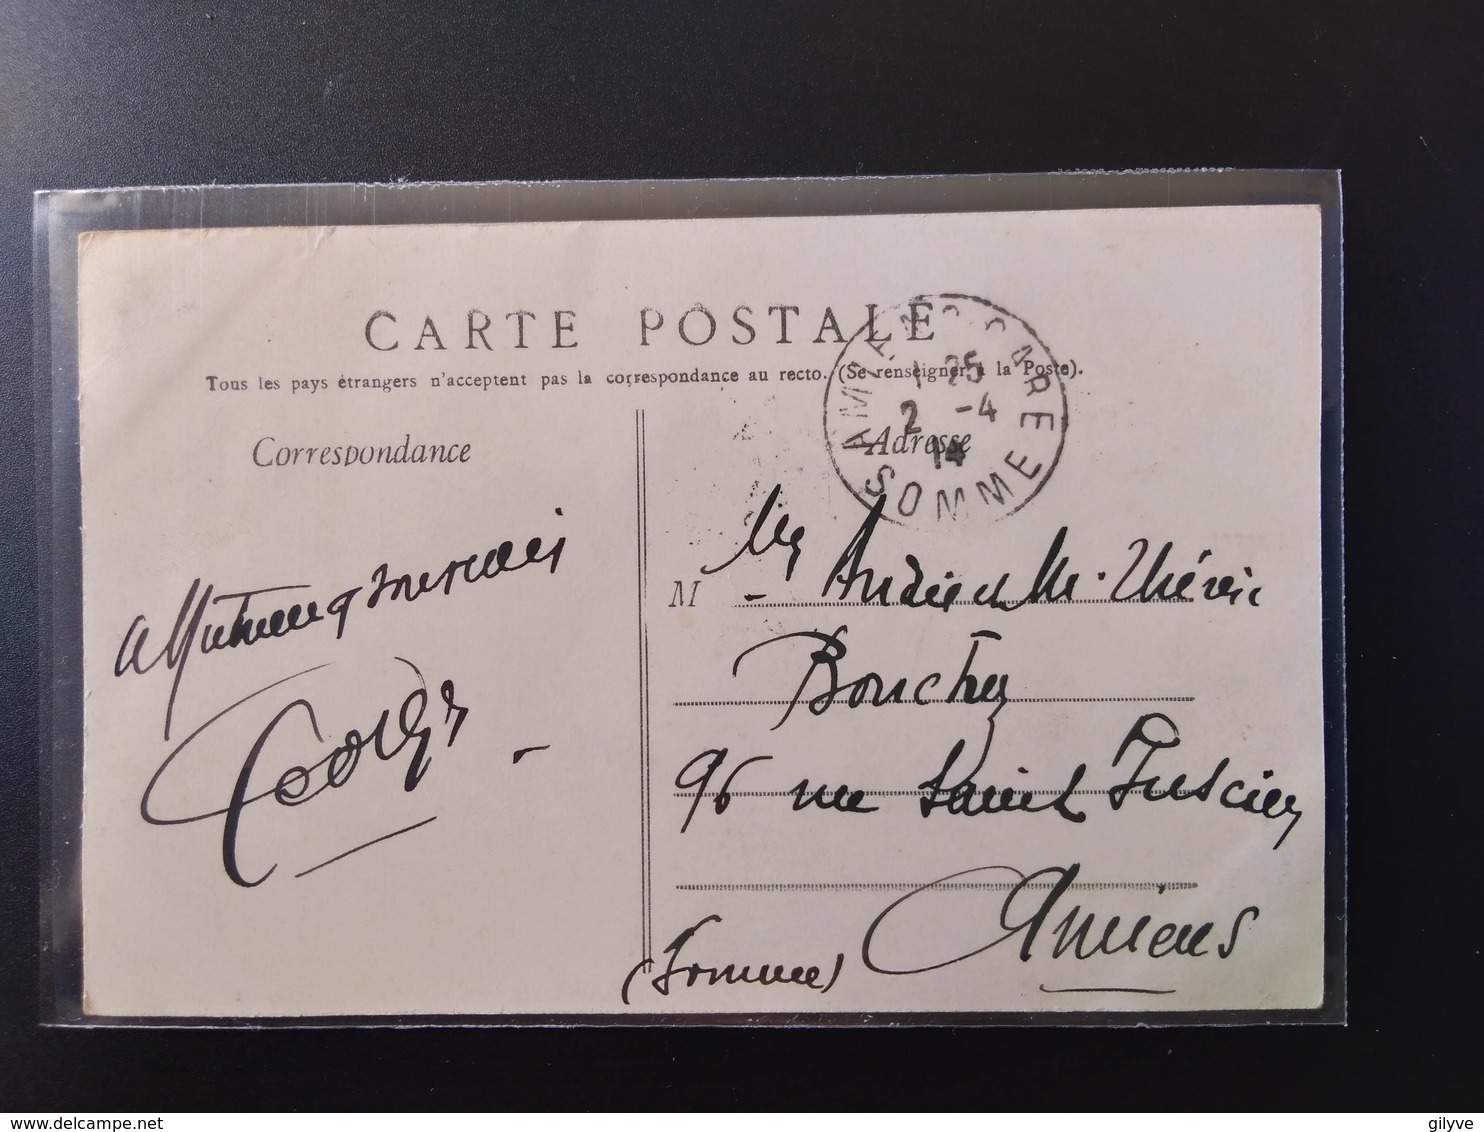 CARTE POSTALE
Tous les pays étrangers n'acceptent pas la correspondance au recto. (Se renseigner à la Poste).
Correspondance
Adresse
AMIENS GARE
1 25
2 -4
14
SOMME
M
André et M. Thérèse
Bouchez
96 rue Saint Fuscien
Amiens
(Somme)
Affectueux
Georges
delcampe.net
gilyve